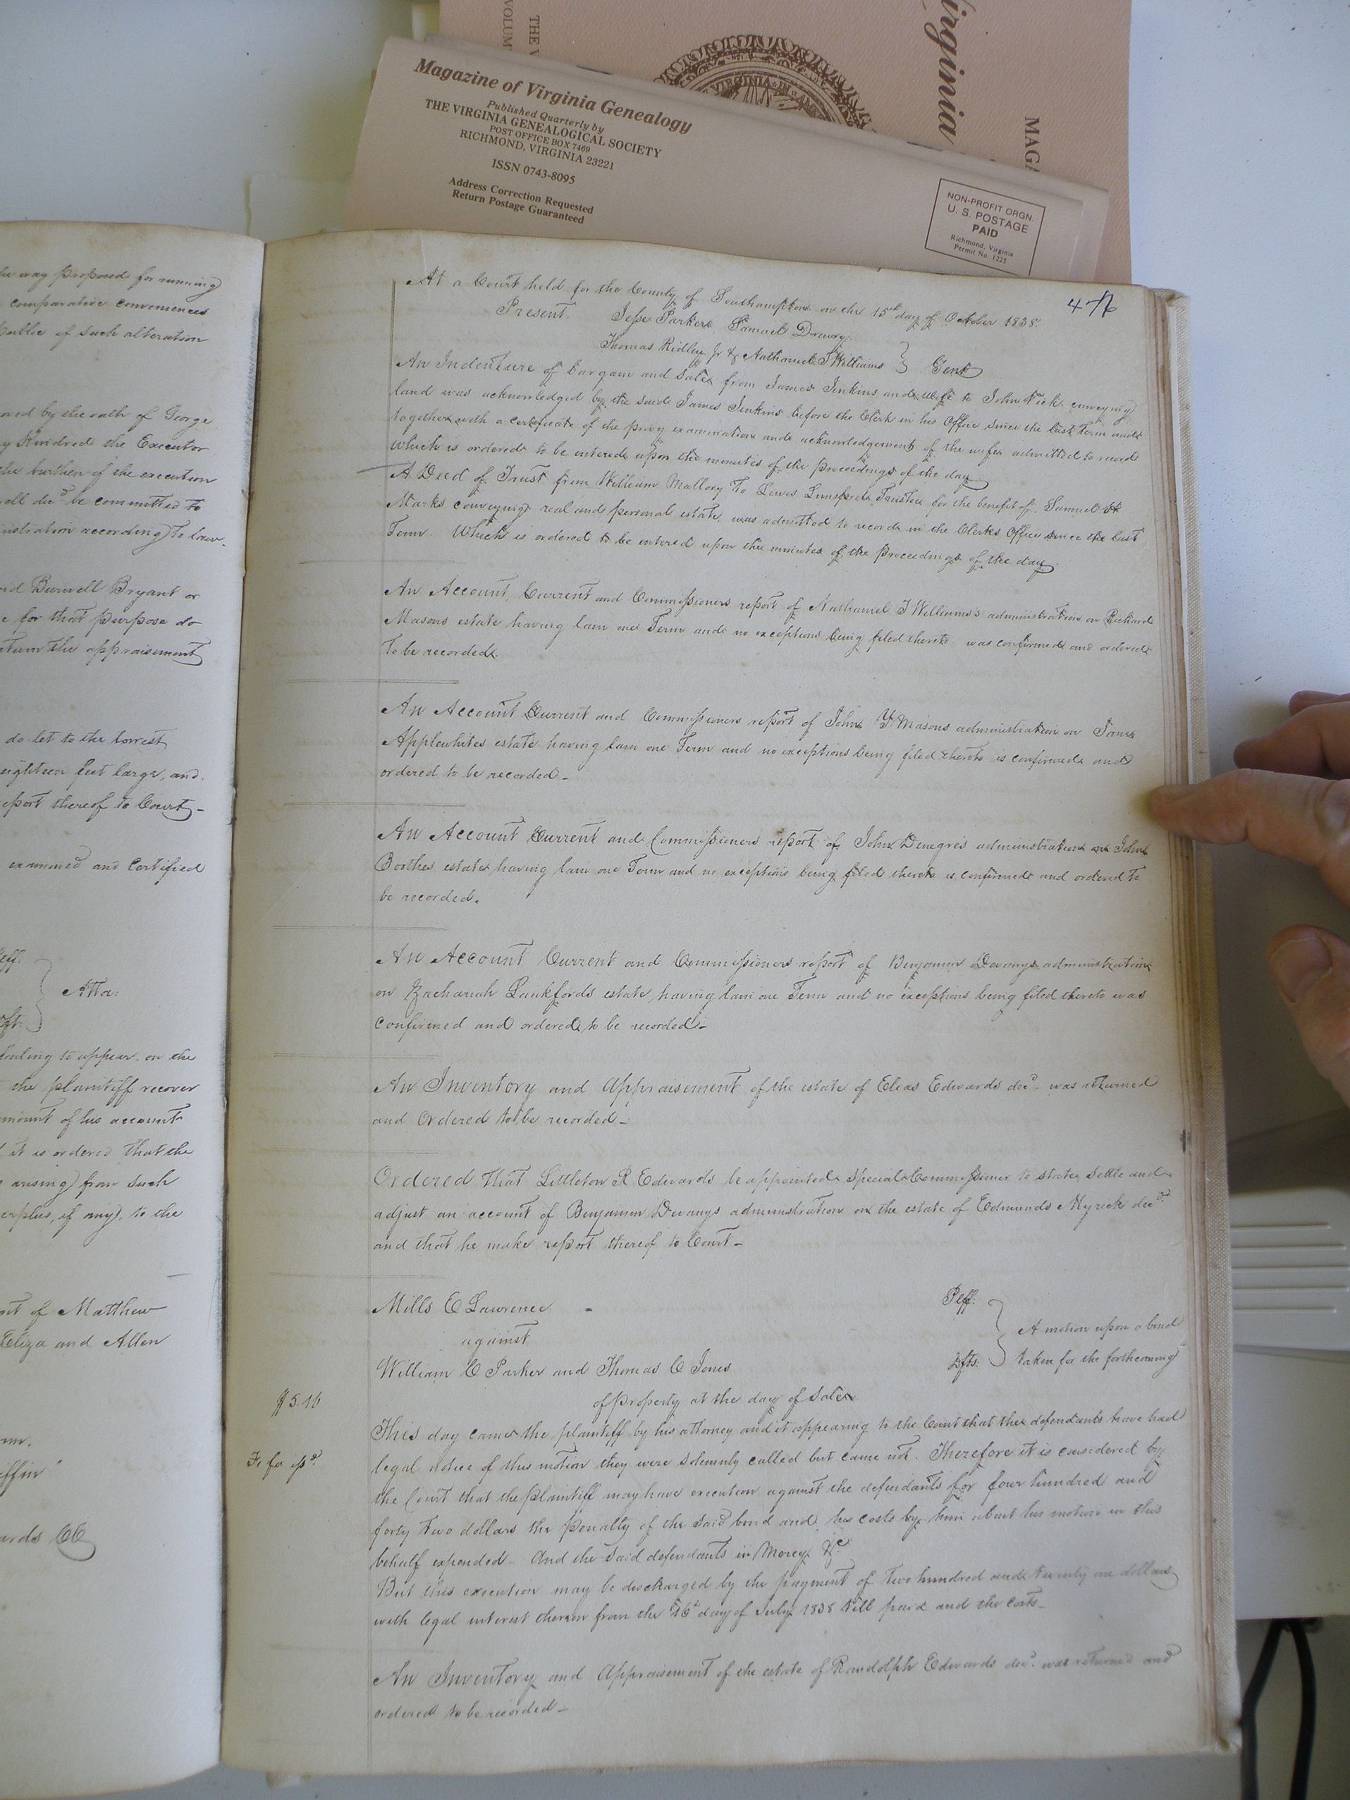 THE V
VOLUM
Virginia
MAG
VIRGINIA
Magazine of Virginia Genealogy
Published Quarterly by
THE VIRGINIA GENEALOGICAL SOCIETY
POST OFFICE BOX 7469
RICHMOND, VIRGINIA 23221
ISSN 0743-8095
Address Correction Requested
Return Postage Guaranteed
NON-PROFIT ORGN.
U. S. POSTAGE
PAID
Richmond, Virginia
Permit No. 1225
way proposed for running
comparative conveniences
public of such alteration
and by the oath of George
Kindred the Executor
the burthen of the execution
decd be committed to
nistration according to law.
Burwell Bryant or
for that purpose do
the appraisement
do let to the lowest
eighteen feet large, and
report thereof to Court
examined and Certified
Peff.
Atta:
failing to appear on the
the plaintiff recover
amount of his account
it is ordered that the
arising from such
surplus, if any, to the
of Matthew
Eliza and Allen
iffin
ards CC
476
At a Court held for the County of Southampton on the 15th day of October 1838.
Present Jesse Parker Samuel Drewry
Thomas Ridley Jr & Nathaniel T Williams } Gent
An Indenture of bargain and Sale from James Jenkins and wife to John Vick conveying
land was acknowledged by the said James Jenkins before the Clerk in his Office since the last term and
together with a certificate of the privy examination and acknowledgement of the wife admitted to record
which is ordered to be entered upon the minutes of the proceedings of the day
A Deed of Trust from William Mallory To Lewis Trustee for the benefit of Samuel
Marks conveying real and personal estate, was admitted to record in the Clerks Office since the last
Term. Which is ordered to be entered upon the minutes of the proceedings of the day
An Account Current and Commissioners report of Nathaniel T Williams's administration on Richard
Masons estate having lain one Term and no exceptions being filed thereto was confirmed and ordered
to be recorded.
An Account Current and Commissioners report of John Y. Masons administration on James
Applewhites estate having lain one Term and no exceptions being filed thereto is confirmed and
ordered to be recorded-
An Account Current and Commissioners report of John administration on John
Boothes estate having lain one Term and no exceptions being filed thereto is confirmed and ordered to
be recorded.
An Account Current and Commissioners report of Benjamin Devanys administration
on Zachariah Lankfords estate, having lain one Term and no exceptions being filed thereto was
confirmed and ordered to be recorded-
An Inventory and Appraisement of the estate of Elias Edwards decd was returned
and Ordered to be recorded-
Ordered that Littleton R Edwards be appointed Special Commissioner to state, settle and
adjust an account of Benjamin Devanys administration on the estate of Edmunds Myrick decd
and that he make report thereof to Court-
Mills E Lawrence - Peff.
against } A motion upon a bond
William C Parker and Thomas C Jones Dfts. taken for the forthcoming
$5.16
of property at the day of sale
This day came the plaintiff by his attorney and it appearing to the Court that the defendants have had
legal notice of this motion they were solemnly called but came not. Therefore it is considered by
Fi fa issd.
the Court that the plaintiff may have execution against the defendants for four hundred and
forty two dollars the penalty of the said bond and his costs by him about his motion in this
behalf expended- And the said defendants in Mercy &c
But this execution may be discharged by the payment of two hundred and twenty one dollars
with legal interest thereon from the 16th day of July 1838 till paid and the costs-
An Inventory and Appraisement of the estate of Randolph Edwards decd. was returned and
ordered to be recorded-